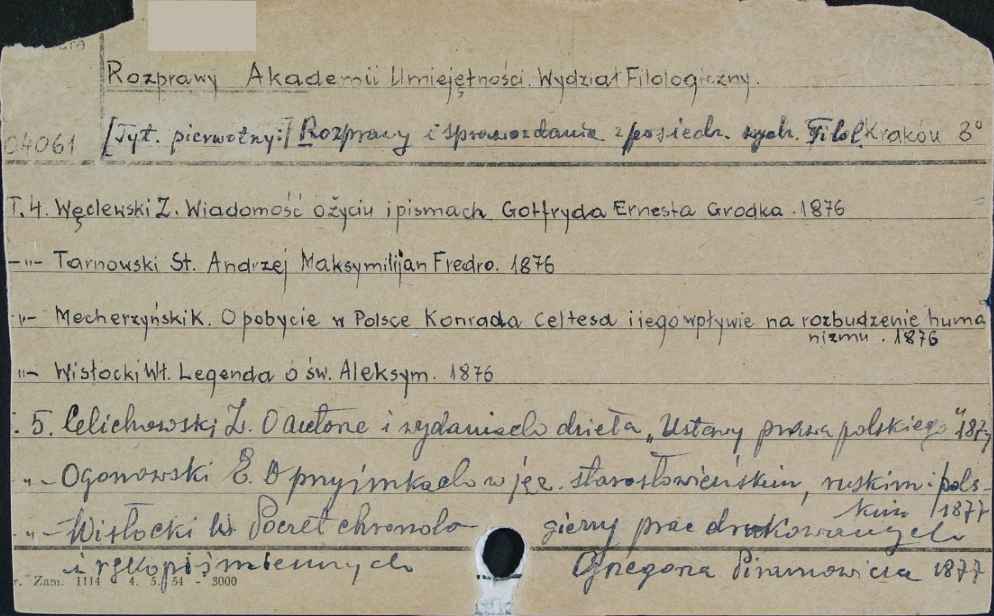 Rozprawy Akademii Umiejętności. Wydział Filologiczny.
04061 [Tyt. pierwotny:] Rozprawy i sprawozdania z posiedz. wydz. Filol. Kraków 8°
T. 4. Węclewski Z. Wiadomość o życiu i pismach Gotfryda Ernesta Grodka. 1876
-"- Tarnowski St. Andrzej Maksymilijan Fredro. 1876
-"- Mecherzyński K. O pobycie w Polsce Konrada Celtesa i jego wpływie na rozbudzenie huma
nizmu. 1876
-"- Wisłocki Wł. Legenda o św. Aleksym. 1876
5. Celichowski Z. O autorze i wydaniach dzieła „Ustawy prawa polskiego" 1877
-"- Ogonowski E. O przyimkach w jęz. starosłowieńskim, ruskim i pols-
kim 1877
-"- Wisłocki W. Poczet chronolo giczny prac drukowanych
i rękopiśmiennych Grzegorza Piramowicza 1877
r. Zam. 1114 - 4. 5. 54 - 3000